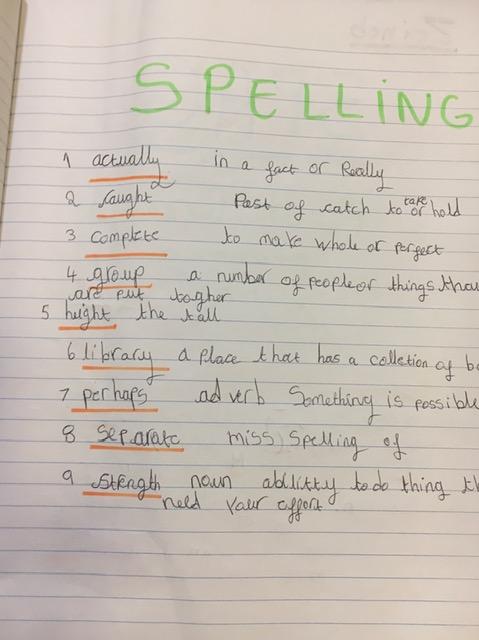 SPELLING
1 actually in a fact or Really
2 caught Past of catch to take or hold
3 complete to make whole or perfect
4 group a number of people or things
are put togher
5 height the tall
6 library a place that has a colletion of
7 perhaps adverb Something is possible
8 separate miss spelling of
9 strength noun ablitty to do thing
need your effort